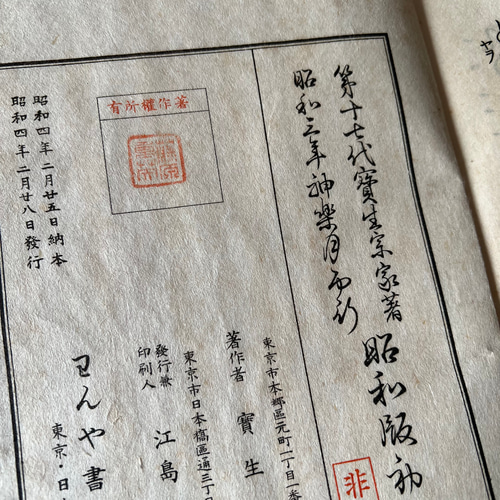 第十七代寶生宗家著
昭和版
昭和三年神樂月
非
著作權所有
東京市本郷區元町一丁目一番
著作者 寶生
東京市日本橋區通三丁
發行兼
印刷人 江島
わんや書
東京・日
昭和四年二月廿五日納本
昭和四年二月廿八日發行